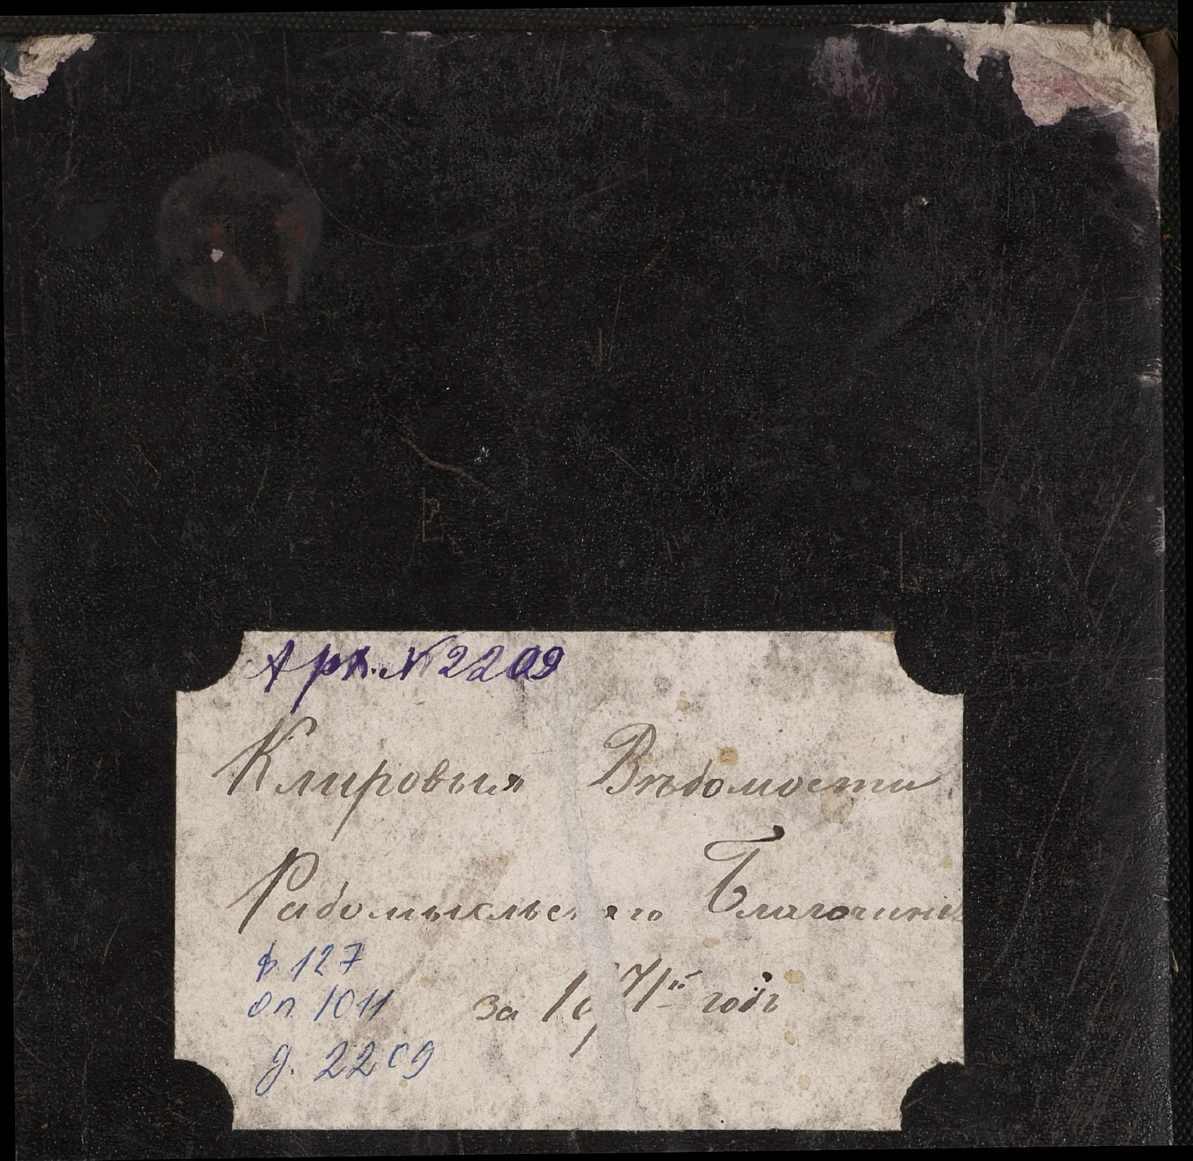 Арх. № 2209
Клировыя Вѣдомости
Радомысльскаго Благочинія
ф. 127
оп 1011
за 1871й годъ
д. 2209